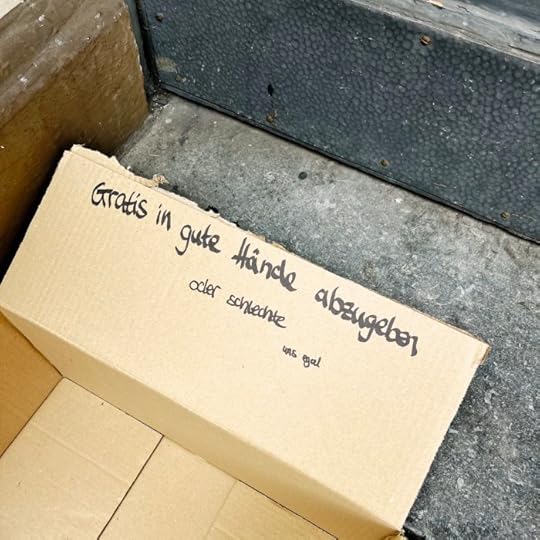 Gratis in gute Hände abzugeben
oder schlechte
uns egal